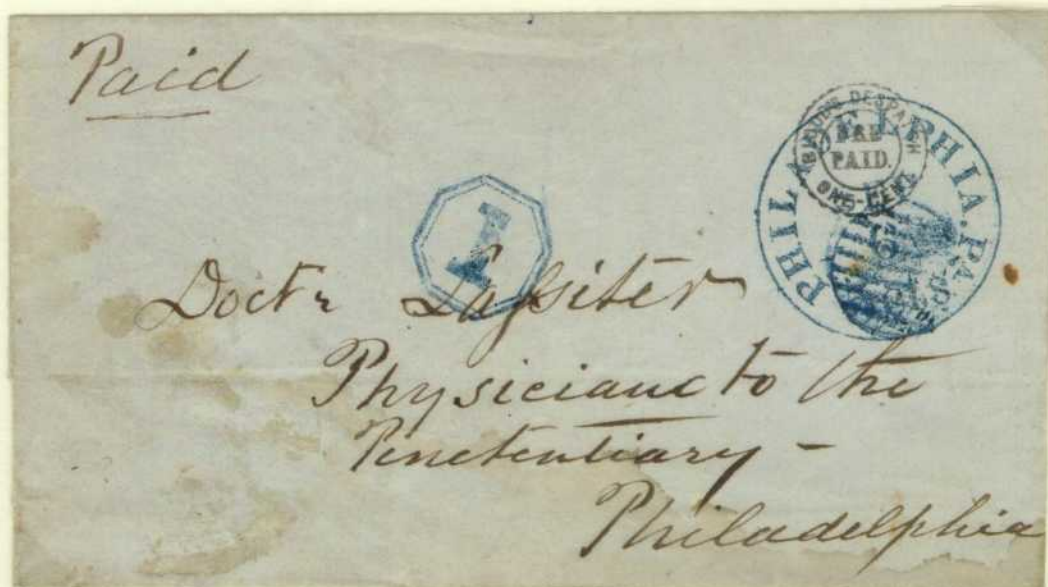 Paid
BLOOD'S DESPATCH
PRE
PAID.
ONE-CENT
PHILADELPHIA. PA.
1
Doctr Lassiter
Physiciane to the
Penetentiary -
Philadelphia